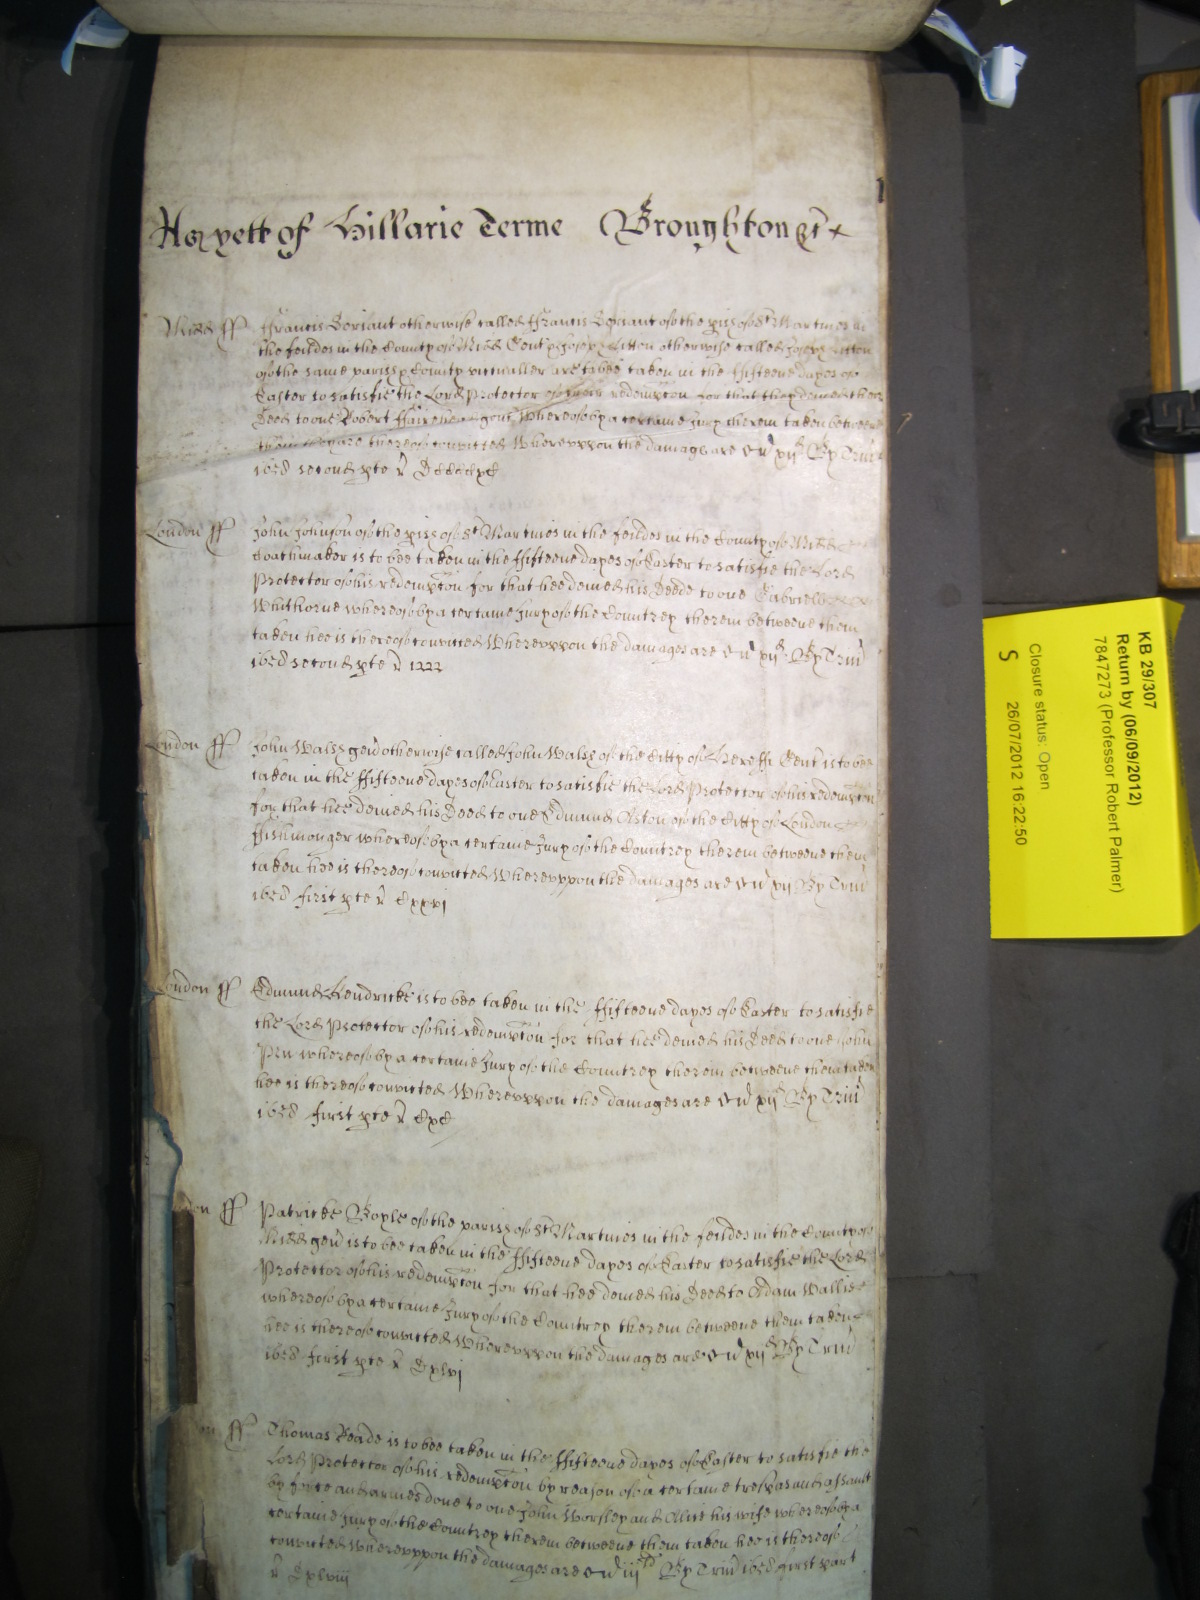 1
of Hillarie Terme Broughton
Midd ff ffrancis Soriant otherwise called ffrancis of the pish of St Martines in
the feildes in the County of Midd Gent otherwise called
of the same parish & County victualler are to bee taken in the ffifteene dayes of
Easter to satisfie the Lord Protector of their redempcon for that they denied their
Deed to one Robert gent Whereof by a certaine Jury therein taken betweene
them are thereof convicted Whereuppon the damages are xijd By Trin
1658 second pte
London ff John Johnson of the pish of St Martines in the feildes in the County of Midd
Coachmaker is to bee taken in the ffifteene dayes of Easter to satisfie the Lord
Protector of his redempcon for that hee denied his Deede to one Gabriell
Whithorne whereof by a certaine Jury of the Countrey therein betweene them
taken hee is thereof convicted Whereuppon the damages are xijd By Trin
1658 second pte
London ff John Walsh gen otherwise called John Walsh of the Citty of Gent is to bee
taken in the ffifteene dayes of Easter to satisfie the Lord Protector of his redempcon
for that hee denied his Deed to one Edmund Aston of the Citty of London
ffishmonger whereof by a certaine Jury of the Countrey therein betweene them
taken hee is thereof convicted Whereuppon the damages are xijd By Trin
1658 first pte Cxxvj
London ff Edmund Hendricke is to bee taken in the ffifteene dayes of Easter to satisfie
the Lord Protector of his redempcon for that hee denied his Deed to one John
whereof by a certaine Jury of the Countrey therein betweene them taken
hee is thereof convicted Whereuppon the damages are xijd By Trin
1658 first pte CxC
don ff Patricke Boyle of the parish of St Martines in the feildes in the County of
Midd gen is to bee taken in the ffifteene dayes of Easter to satisfie the Lord
Protector of his redempcon for that hee denied his Deed to Adam Wallis
whereof by a certaine Jury of the Countrey therein betweene them taken
hee is thereof convicted Whereuppon the damages are xijd By Trin
1658 first pte Dxlvj
on ff Thomas Reade is to bee taken in the ffifteene dayes of Easter to satisfie the
Lord Protector of his redempcon by reason of a certaine trespas and assault
by force and armes done to one John Worsley and Alice his wife whereof by a
certaine Jury of the Countrey therein betweene them taken hee is thereof
convicted Whereuppon the damages are By Trin 1658 first part
Dxlviij
KB 29/307
Return by (06/09/2012)
7847273 (Professor Robert Palmer)
Closure status: Open
S 26/07/2012 16:22:50